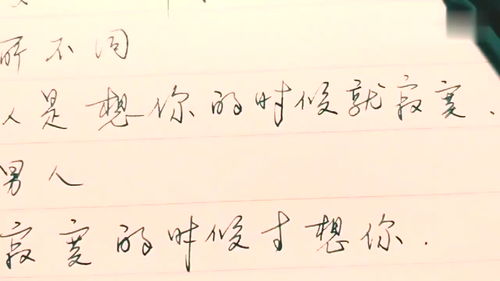 所不同
人是想你的时候就寂寞.
男人
寂寞的时候才想你.